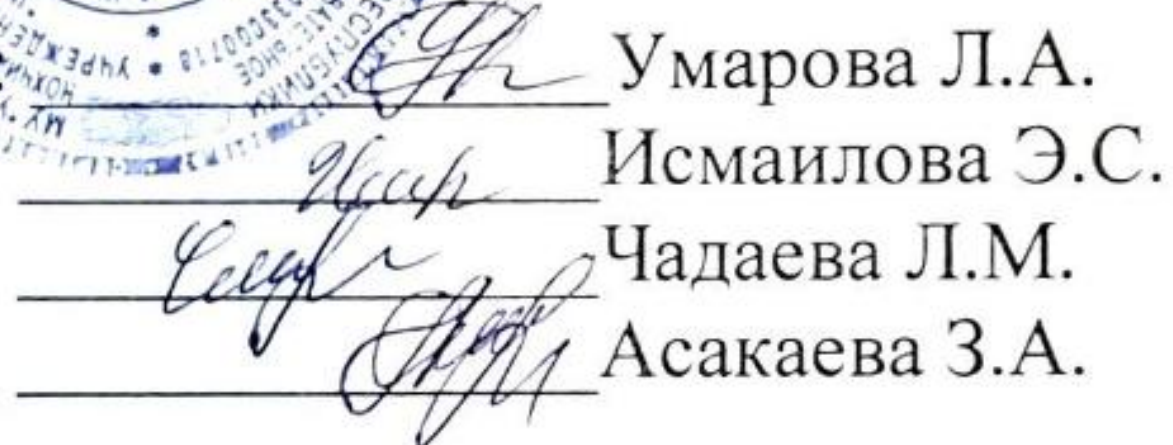 Умарова Л.А.
Исмаилова Э.С.
Чадаева Л.М.
Асакаева З.А.